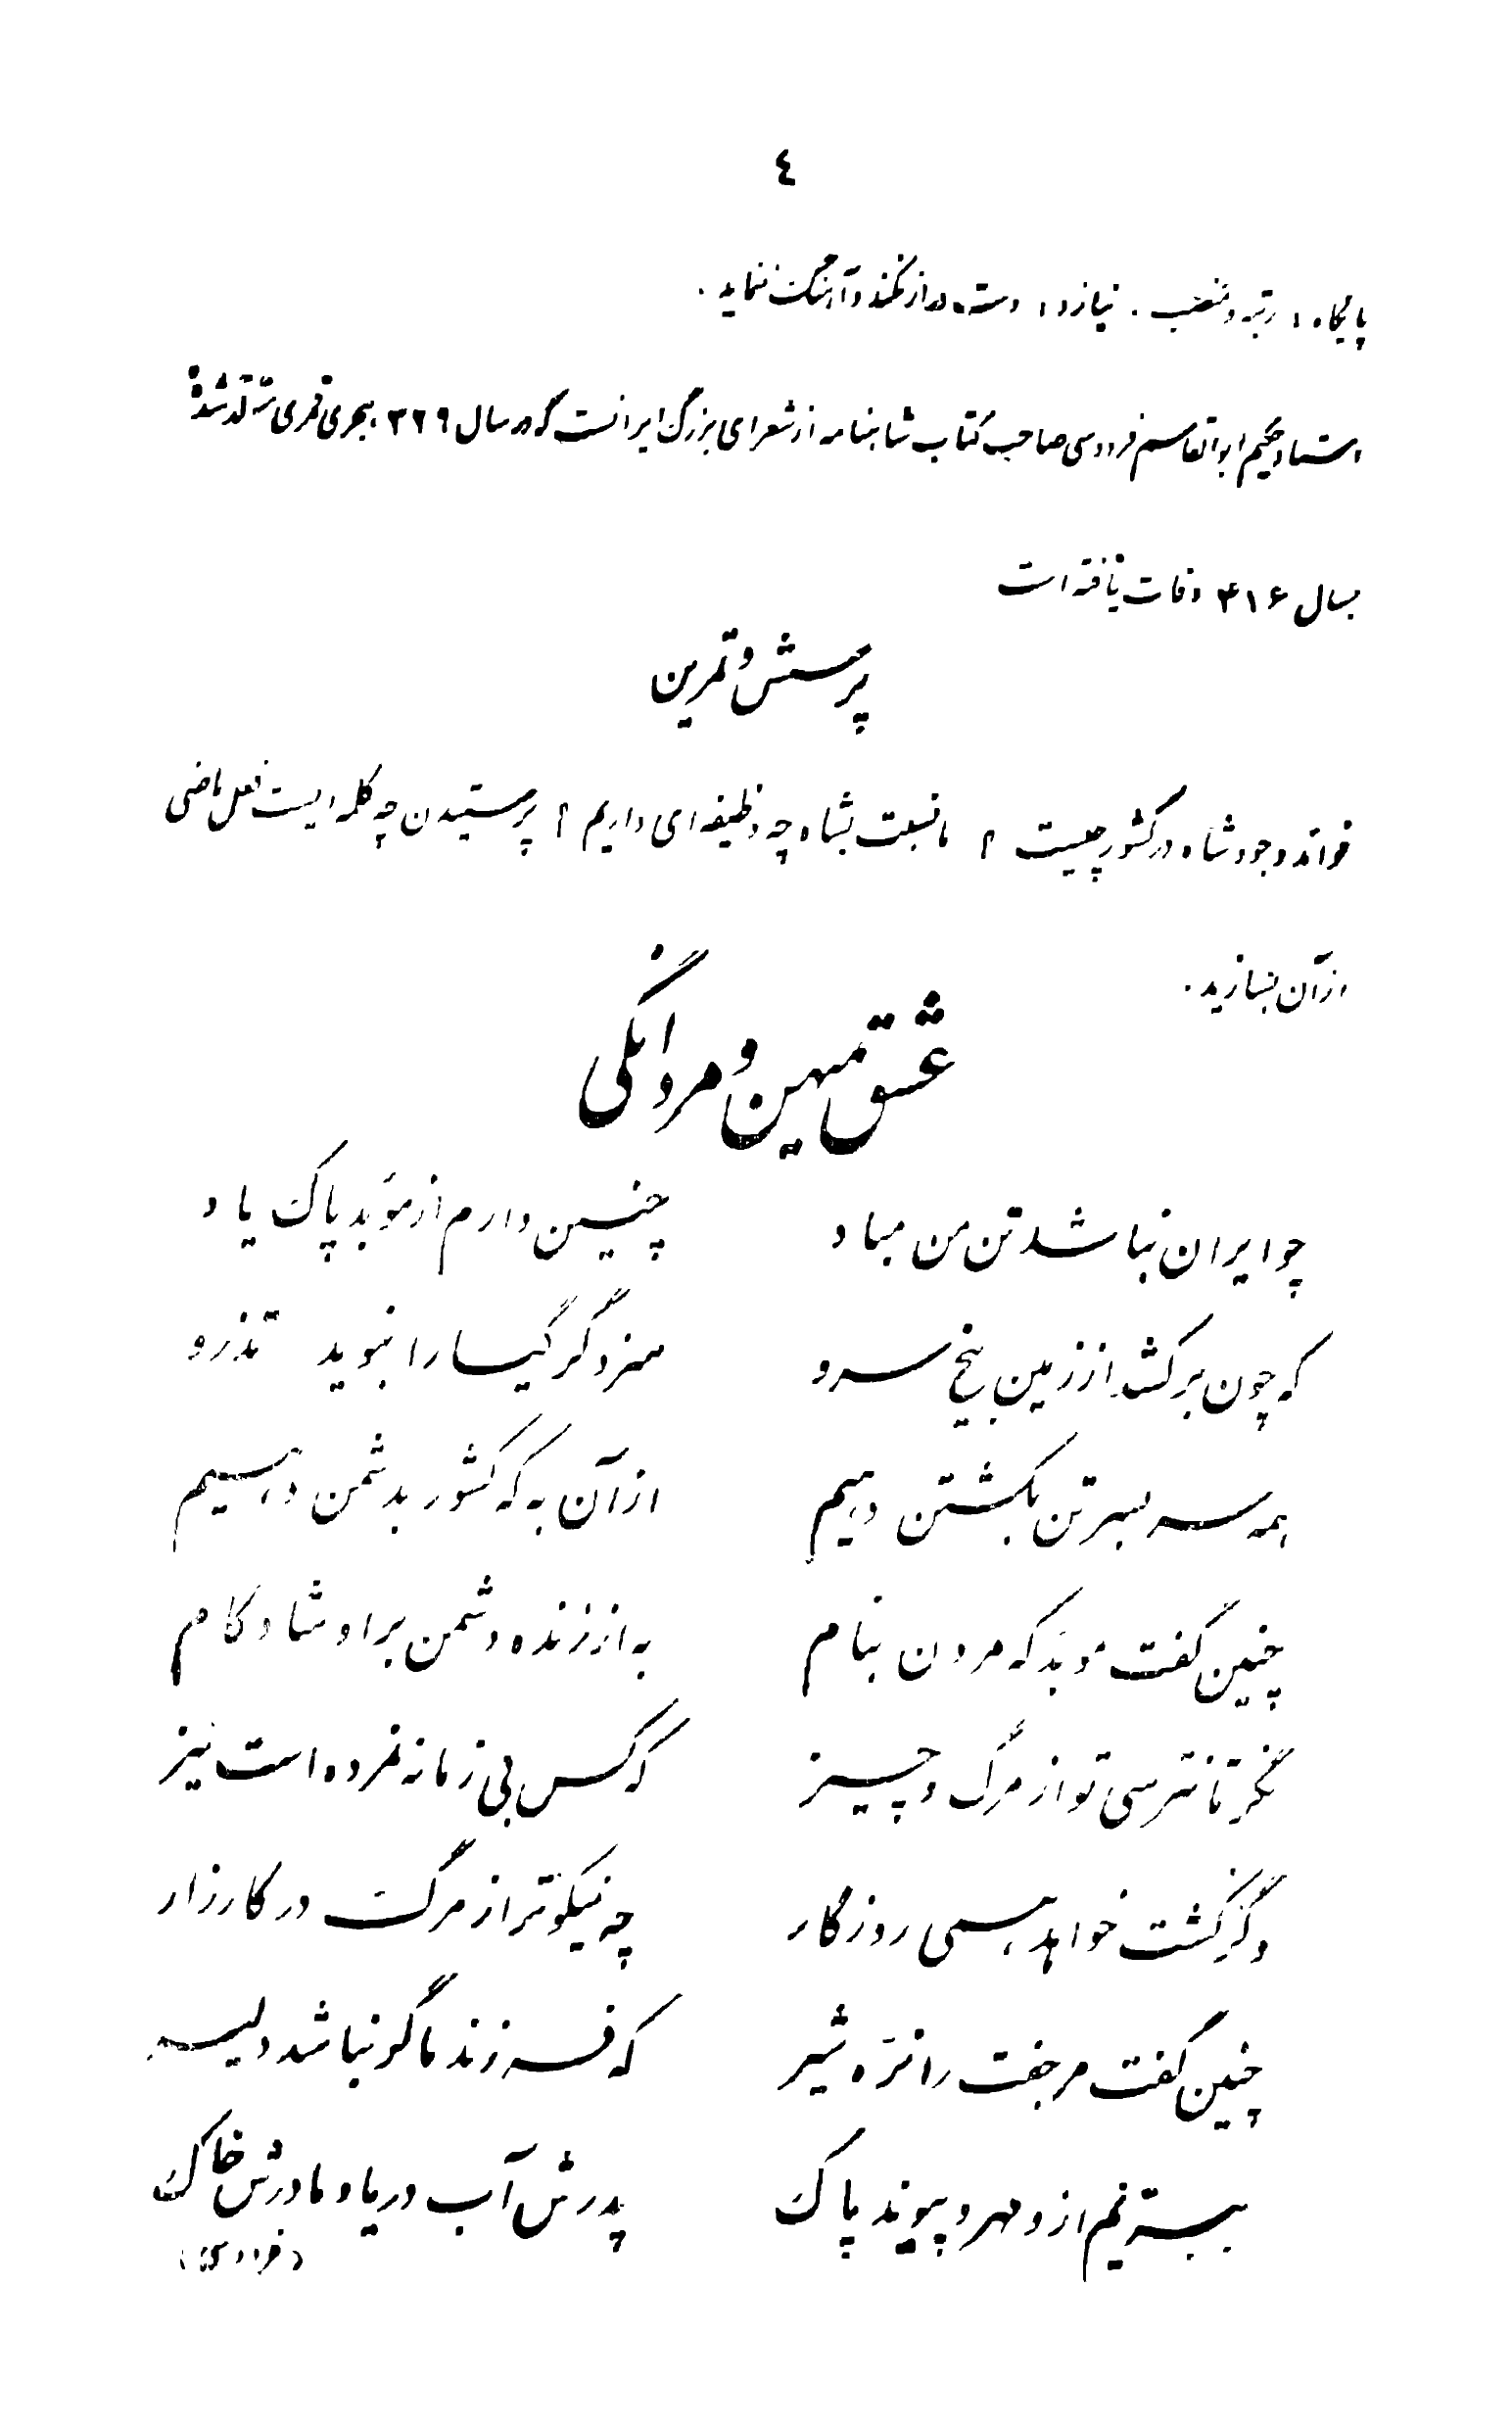 ٤
پایگاه، رتبه و منصب. نیازد، دست دراز نکند و آهنگ ننماید.
استاد حکیم ابوالقاسم فردوسی صاحب کتاب شاهنامه از شعرای بزرگ ایرانست که در سال ۳۲۹ هجری قمری متولد شده
بسال ۴۱۶ وفات یافته است
پرسش و تمرین
فوائد وجود شاه در کشور چیست؟ ما نسبت بشاه چه وظیفه‌ای داریم؟ پرستیدن چه کلمه‌ایست فعل ماضی
از آن بسازید.
عشق میهن و مردانگی
چو ایران نباشد تن من مباد چنین دارم از موبد پاک یاد
که چون برکشد از زمین بیخ سرو سزد گر گیا را نبوید تذرو
همه سر بسر تن بکشتن دهیم از آن به که کشور بدشمن دهیم
چنین گفت موبد که مردن بنام به از زنده دشمن بر او شادکام
نگر تا نترسی تو از مرگ و چیز که کس بی زمانه نمرده است نیز
وگر کشت خواهد همی روزگار چه نیکوتر از مرگ در کارزار
چنین گفت مر جفت را نرّه شیر که فرزند ما گر نباشد دلیر
ببرّیم از او مهر و پیوند پاک پدرش آب دریا و مادرش خاک
(فردوسی)